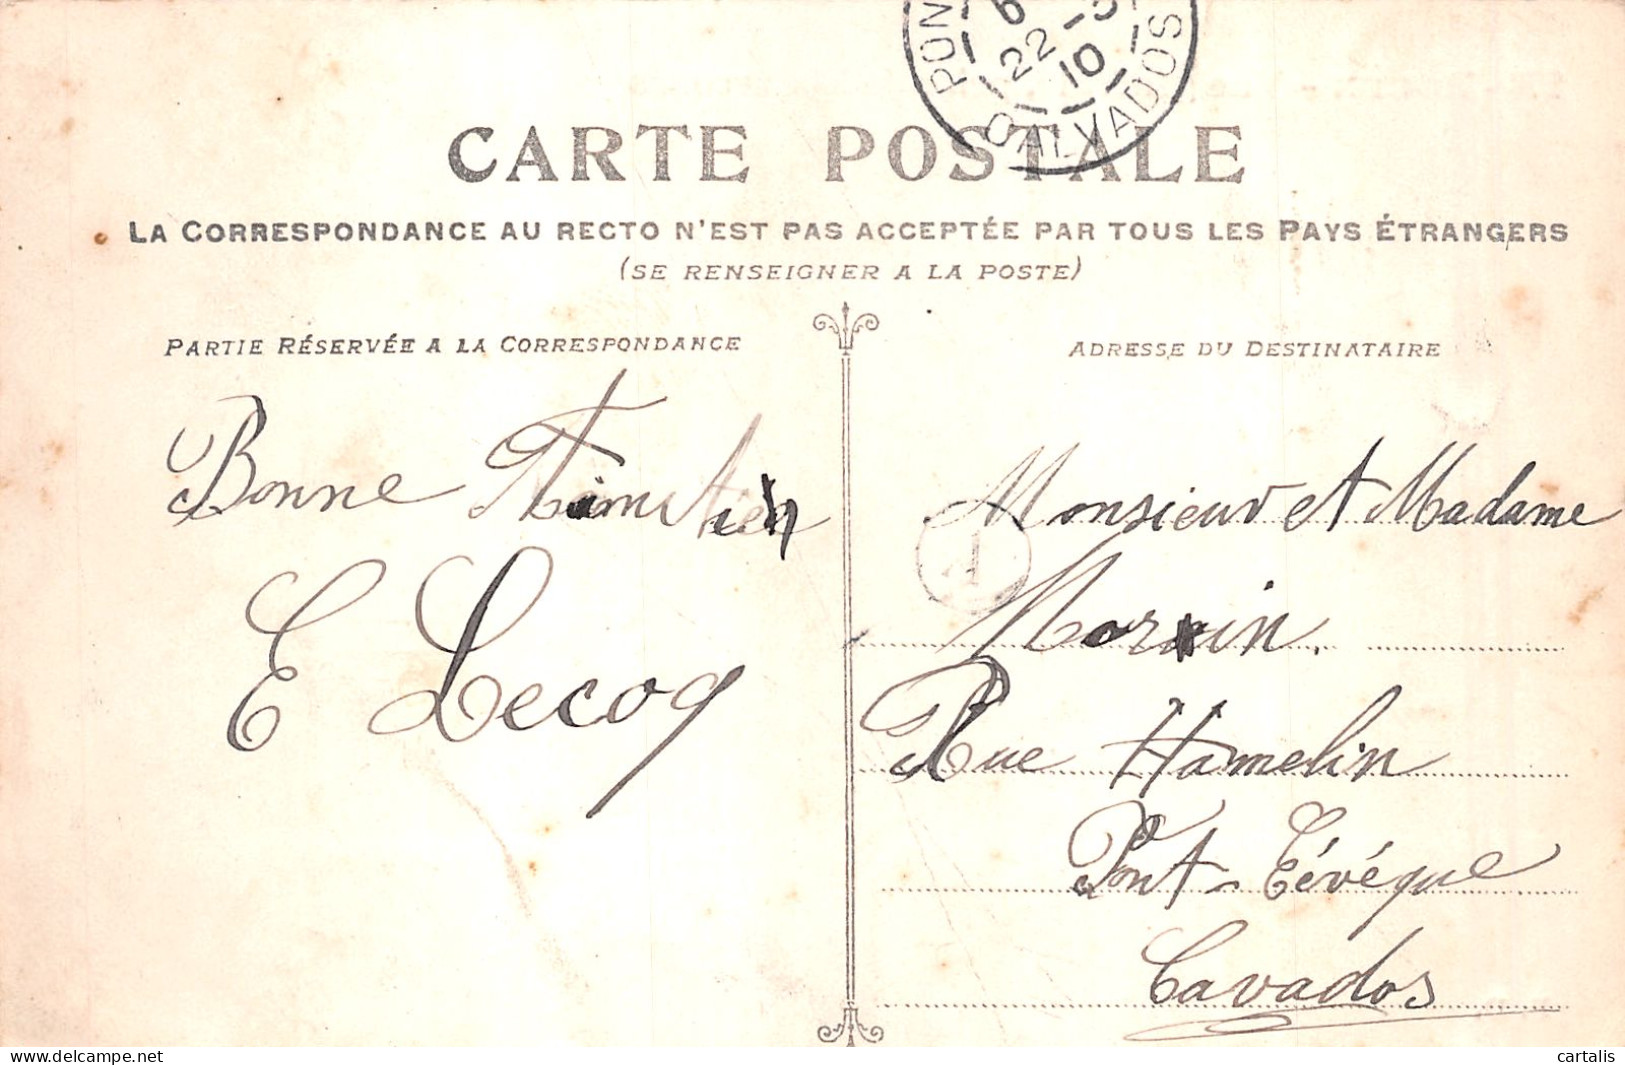 PON
22
10
CALVADOS
CARTE POSTALE
LA CORRESPONDANCE AU RECTO N'EST PAS ACCEPTÉE PAR TOUS LES PAYS ÉTRANGERS
(SE RENSEIGNER A LA POSTE)
PARTIE RÉSERVÉE A LA CORRESPONDANCE
ADRESSE DU DESTINATAIRE
Bonne
E Lecoq
Monsieur et Madame
1
Rue Hamelin
Pont-Évéque
Cavados
delcampe.net
cartalis